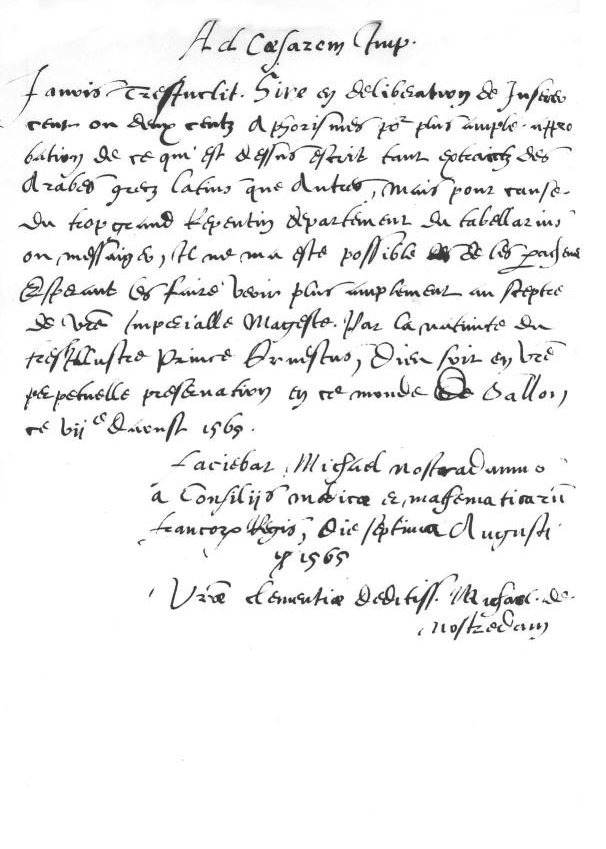 Ad Cæsarem Imp.
J'avois Tresinclit. Sire en deliberation de
cent ou deux centz Aphorismes po^r plus ample appro
bation de ce qui est dessus escrit tant extraictz des
Arabes grecz latins que Autres, mais pour cause
du trop grand Repentin departement du tabellarius
ou messaiger, Il ne ma este possible de les
Esperant les faire venir plus amplement au sceptre
de vr̃e Imperialle Mageste. Par la nativite du
tresillustre Prince Ernestus, Dieu soit en vr̃e
perpetuelle preservation en ce monde De Sallon,
ce vij^e d'aoust 1565.
Faciebat Michael nostradamus
a Consilijs medicæ et mathematicarũ
francorꝝ Regis, Die septima Augusti
1565
Vr̃æ clementiæ deditiss. Michael de
nostredam